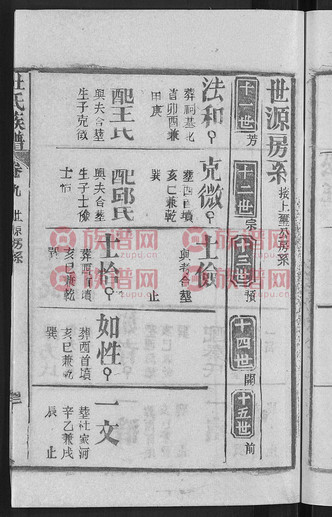 世源房系 接上璽公房系
十一世 芳 十二世 宗 十三世 預 十四世 開 十五世 前
法和 葬祠基坵酉卯酉兼田庚
克微 塟酉首墳亥巳兼乾巽
士俊 與考合塟 止
配王氏 與夫合塟生子克微
配邱氏 與夫合塟生子士俊士恰
士恰 葬酉首墳亥巳兼乾巽
如性 葬酉首墳亥巳兼乾巽
一文 塟社家河辛乙兼戌辰 止
杜氏族譜 卷九 世源房系
族谱网